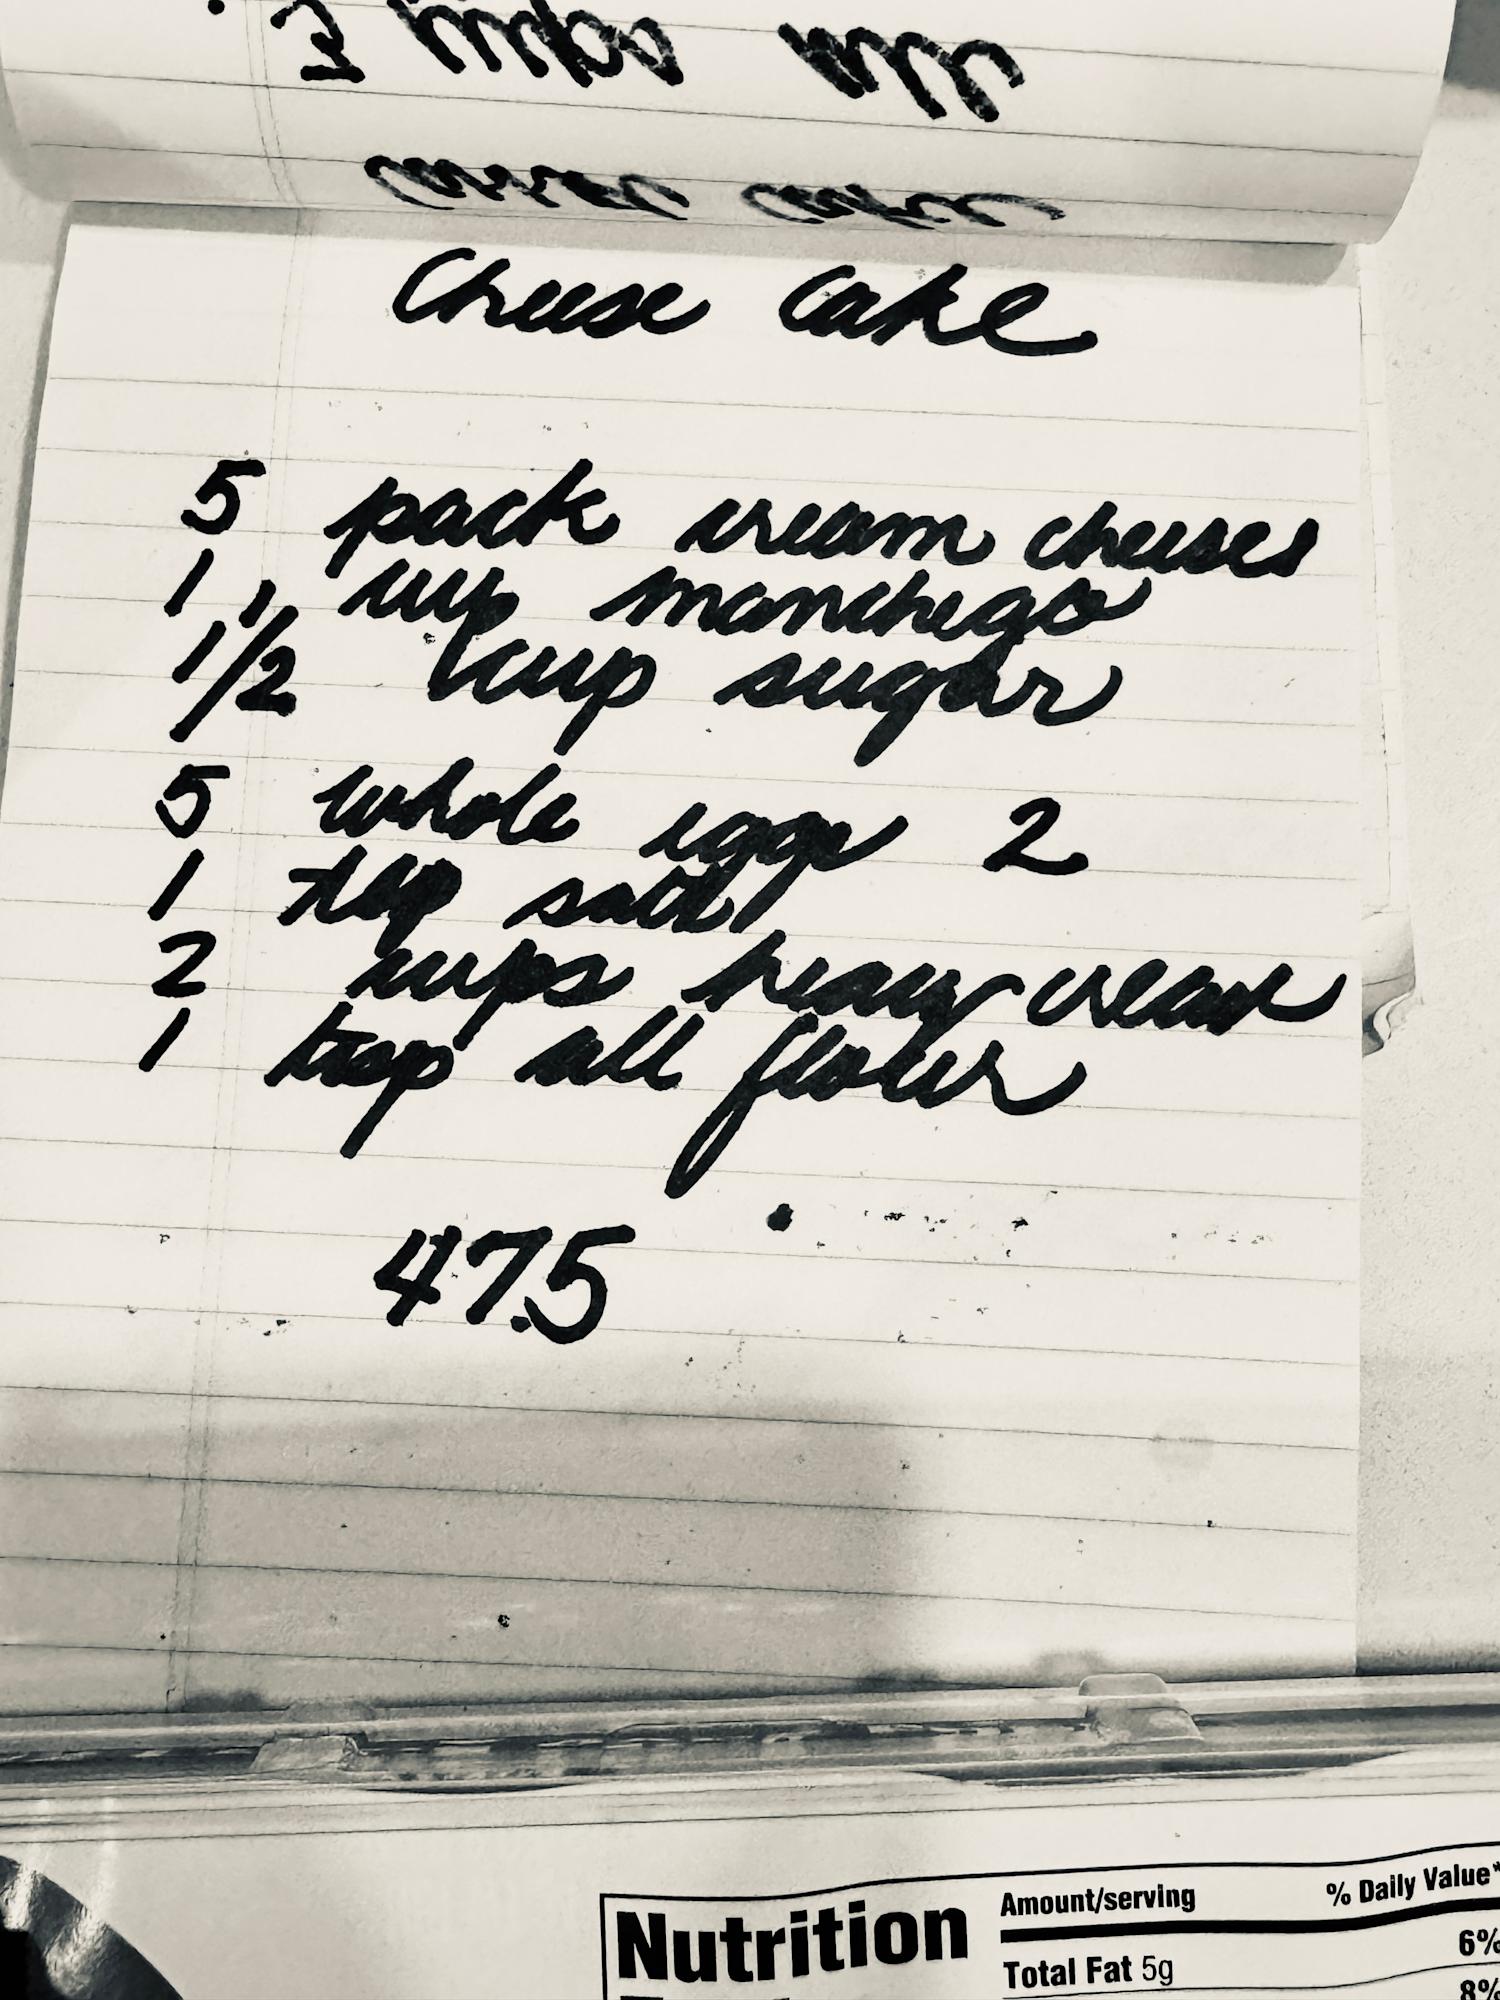 3 cups all
carrot cake
Cheese Cake
5 pack cream cheeses
1 cup manchego
1 1/2 cup sugar
5 whole eggs 2
1 tsp salt
2 cups heavy cream
1 tbsp all flour
47.5
Nutrition
Amount/serving % Daily Value*
Total Fat 5g 6%
8%